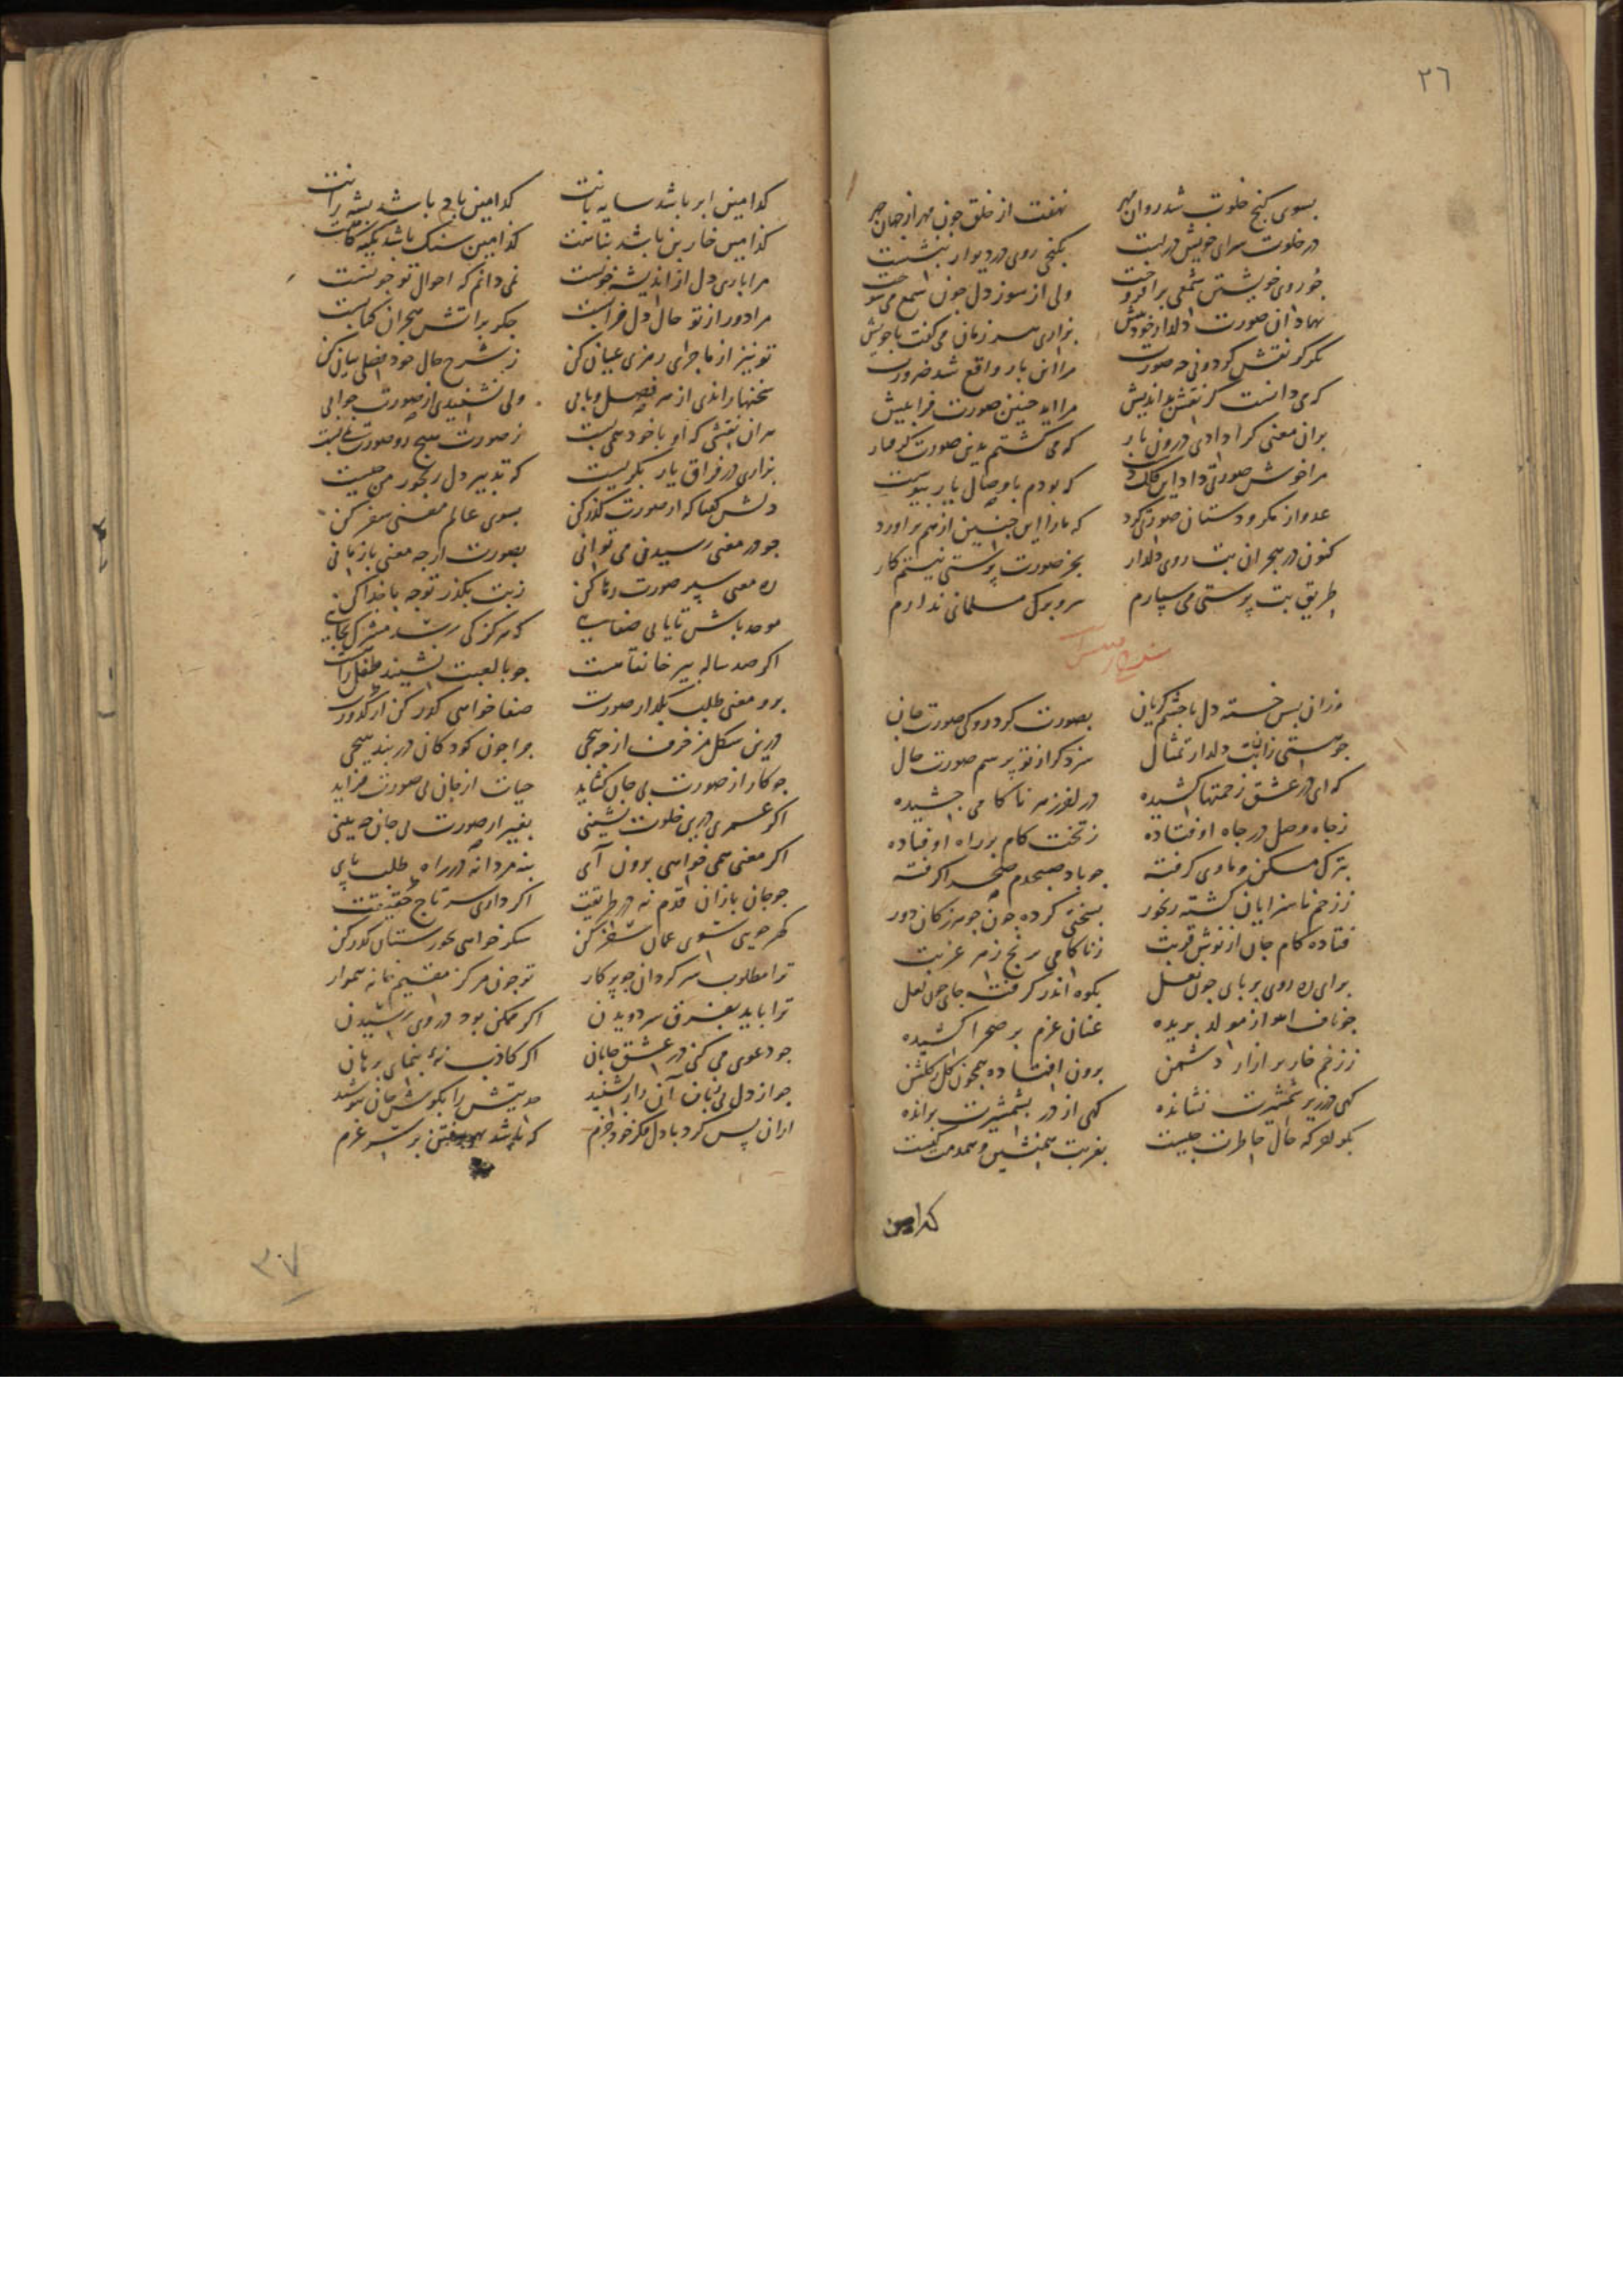 ٣٦
بسوی کنج خلوت شد روان مهر نهفت از خلق چون مهر از جهان چهر
در خلوت سرای خویش در بست بکنجی روی در دیوار بنشست
چو روی خویشتن شمعی برافروخت ولی از سوز دل چون شمع می سوخت
نهاد ان صورت دلدار خود پیش بزاری هر زمان می کفت با خویش
مرا این بار واقع شد ضرورت
که می دانست کز نقش بداندیش مرا اید چنین صورت فرا پیش
بران معنی کرا دادی درون بار که می کشتم بدین صورت کرفتار
مرا خوش صورتی داد این که بودم با وصال یار پیوست
عدو از مکر و دستان صورتی کرد که ما را این چنین از هم براورد
کنون در هجر ان بت روی دلدار بجز صورت پرستی نیستم کار
طریق بت پرستی می سپارم سر و برک مسلمانی ندارم
وزان پس خسته دل با چشم کریان بصورت کرد روکی صورت جان
چو هستی زان بت دلدار تمثال سزد کر از تو پرسم صورت حال
که ای در عشق زحمتها کشیده ز ناکامی چشیده
ز جاه وصل در چاه اوفتاده ز تخت کام بر راه اوفتاده
بترک مسکن و ماوی کرفته چو باد صبحدم صحرا کرفته
ز زخم ناسزایان کشته رنجور بسختی کرده چون جوهر ز کان دور
فتاده کام جان از نوش قربت ز ناکامی برنج زهر غربت
برای ره روی بر پای چون نعل بکوه اندر کرفته جای چون لعل
چو ناف اهو از مولد بریده عنان عزم بر صحرا کشیده
ز زخم خار بر ازار دشمن برون افتاده همچون کل ز کلشن
کهی در زیر شمشیرت نشانده کهی از در بشمشیرت برانده
بکو اخر که حال خاطرت چیست بغربت همنشین و همدمت کیست
کدامین
کدامین ابر باشد سایه بانت کدامین باد باشد پشه رانت
کدامین خار بن باشد بنامت کدامین سنک باشد تکیه کاهت
مرا باری دل از اندیشه خونست نمی دانم که احوال تو چونست
مرا دور از تو حال دل خرابست جکر بر اتش هجران کبابست
تو نیز از ماجرای رمزی عیان کن ز شرح حال خود فصلی بیان کن
سخنها راندی از هر فصل و بابی ولی نشنیدی از صورت جوابی
هر ان نقشی که او با خود همی بست ز صورت هیچ رو صورت نمی بست
بزاری در فراق یار بکریست که تدبیر دل رنجور من چیست
دلش کفتا که از صورت کذر کن بسوی عالم معنی سفر کن
چو در معنی رسیدن می توانی بصورت از چه معنی باز مانی
ره معنی سپر صورت رها کن ز بت بکذر توجه با خدا کن
موحد باش تا یابی صفایی که هرکز کی رسد مشرک بجایی
اکر صد ساله پیر خانقاهست چو با لعبت نشیند طفل راهست
برو معنی طلب بکذار صورت صفا خواهی کذر کن از کدورت
درین شکل مزخرف از چه پیچی چرا چون کودکان در بند هیچی
چو کار از صورت بی جان کشاید حیات از جان بی صورت فزاید
اکر عمری درین خلوت نشینی بغیر از صورت بی جان چه بینی
اکر معنی همی خواهی برون آی بنه مردانه در راه طلب پای
چو جان بازان قدم نه در طریقت اکر داری سر تاج حقیقت
کهر جویی سوی عمان سفر کن شکر خواهی بخورستان کذر کن
ترا مطلوب سرکردان چو پرکار تو چون مرکز مقیم خانه هموار
ترا باید بفرق سر دویدن اکر ممکن بود در وی رسیدن
چو دعوی می کنی در عشق جانان اکر کاذب نه بنمای برهان
چو از دل بی زبان آن راز بشنید حدیثش را بکوش جان نیوشید
ازان پس کرد با دل مکر خود جزم که باشد رفتن بر سر عزم
٣٧